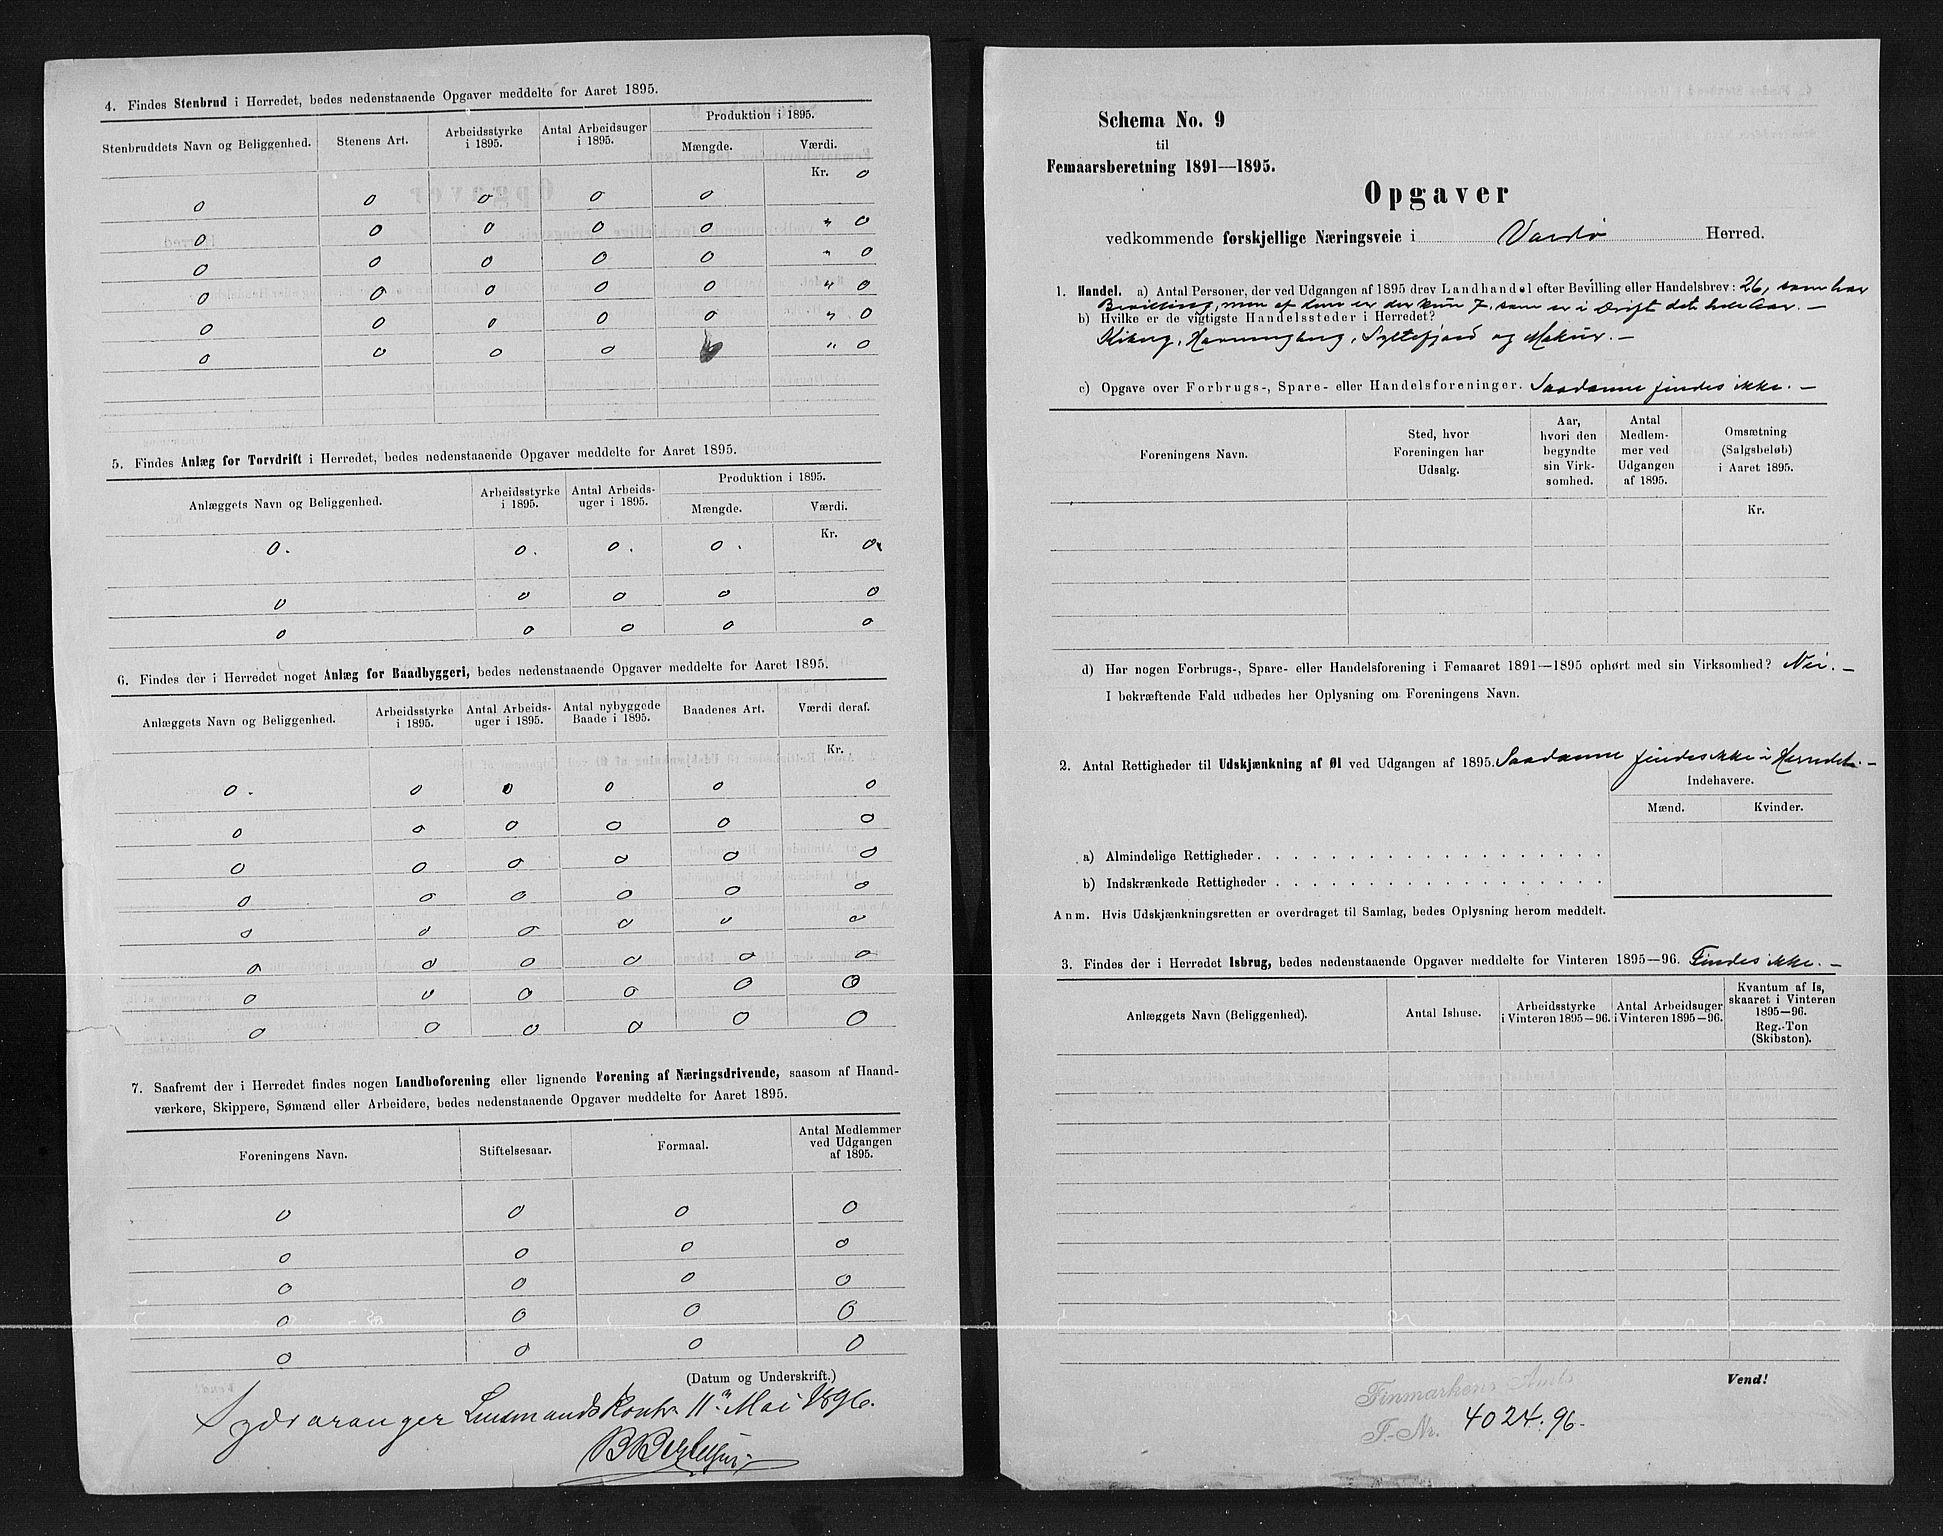 4. Findes Stenbrud i Herredet, bedes nedenstaaende Opgaver meddelte for Aaret 1895.
Stenbruddets Navn og Beliggenhed. Stenens Art. Arbeidsstyrke i 1895. Antal Arbeidsuger i 1895. Produktion i 1895.
Mængde. Værdi.
Kr.
0 0 0 0 0 0
0 0 0 0 0 " 0
0 0 0 0 0 " 0
0 0 0 0 0 " 0
0 0 0 0 0 " 0
0 0 0 0 " 0
5. Findes Anlæg for Torvdrift i Herredet, bedes nedenstaaende Opgaver meddelte for Aaret 1895.
Anlæggets Navn og Beliggenhed. Arbeidsstyrke i 1895. Antal Arbeidsuger i 1895. Produktion i 1895.
Mængde. Værdi.
Kr.
0. 0. 0. 0. 0
0 0 0 0 0
0 0 0 0 0
6. Findes der i Herredet noget Anlæg for Baadbyggeri, bedes nedenstaaende Opgaver meddelte for Aaret 1895.
Anlæggets Navn og Beliggenhed. Arbeidsstyrke i 1895. Antal Arbeidsuger i 1895. Antal nybyggede Baade i 1895. Baadenes Art. Værdi deraf.
Kr.
0. 0 0 0 0 0
0 0 0 0 0 0
0 0 0 0 0 0
0 0 0 0 0 0
0 0 0 0 0 0
0 0 0 0 0 0
0 0 0 0 0 0
0 0 0 0 0 0
7. Saafremt der i Herredet findes nogen Landboforening eller lignende Forening af Næringsdrivende, saasom af Haand-
værkere, Skippere, Sømænd eller Arbeidere, bedes nedenstaaende Opgaver meddelte for Aaret 1895.
Foreningens Navn. Stiftelsesaar. Formaal. Antal Medlemmer ved Udgangen af 1895.
0 0 0 0
0 0 0 0
0 0 0 0
0 0 0 0
0 0 0 0
(Datum og Underskrift.)
Sydvaranger Lensmandskontr 11 Mai 1896.
Schema No. 9
til
Femaarsberetning 1891—1895.
Opgaver
vedkommende forskjellige Næringsveie i Vardø Herred.
1. Handel. a) Antal Personer, der ved Udgangen af 1895 drev Landhandel efter Bevilling eller Handelsbrev: 26, som har
Bevilling, men af dem er der kun 7, som er i Drift det hele Aar. —
b) Hvilke er de vigtigste Handelssteder i Herredet?
Kiberg, Havningberg, Syltefjord og Makur. —
c) Opgave over Forbrugs-, Spare- eller Handelsforeninger. Saadanne findes ikke. —
Foreningens Navn. Sted, hvor Foreningen har Udsalg. Aar, hvori den begyndte sin Virksomhed. Antal Medlemmer ved Udgangen af 1895. Omsætning (Salgsbeløb) i Aaret 1895.
Kr.
d) Har nogen Forbrugs-, Spare- eller Handelsforening i Femaaret 1891—1895 ophørt med sin Virksomhed? Nei. —
I bekræftende Fald udbedes her Oplysning om Foreningens Navn.
2. Antal Rettigheder til Udskjænkning af Øl ved Udgangen af 1895. Saadanne findes ikke i Herredet. —
Indehavere.
Mænd. Kvinder.
a) Almindelige Rettigheder
b) Indskrænkede Rettigheder
Anm. Hvis Udskjænkningsretten er overdraget til Samlag, bedes Oplysning herom meddelt.
3. Findes der i Herredet Isbrug, bedes nedenstaaende Opgaver meddelte for Vinteren 1895—96. Findes ikke. —
Anlæggets Navn (Beliggenhed). Antal Ishuse. Arbeidsstyrke i Vinteren 1895—96. Antal Arbeidsuger i Vinteren 1895—96. Kvantum af Is, skaaret i Vinteren 1895—96. Reg.-Ton (Skibston).
Vend!
Finmarkens Amt
J.-Nr. 4024.96.